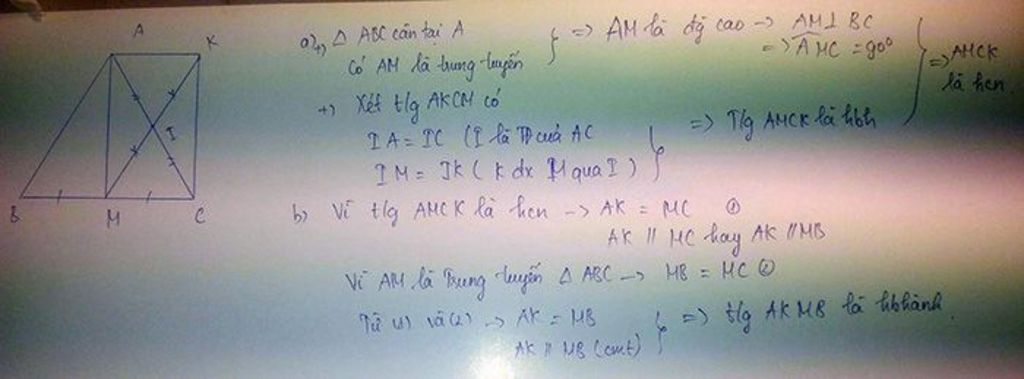 A K
I
B M C
a) +) Δ ABC cân tại A
Có AM là trung tuyến } => AM là đg cao -> AM ⊥ BC
=> AMC = 90°
=> AMCK
là hcn
+) Xét t/g AKCM có
IA = IC (I là TĐ của AC
IM = IK (K đx M qua I) } => T/g AMCK là hbh
b) Vì t/g AMCK là hcn -> AK = MC ①
AK // MC hay AK // MB
Vì AM là Trung tuyến Δ ABC -> MB = MC ②
Từ (1) và (2) -> AK = MB
AK // MB (cmt) } => t/g AKMB là hbhành.